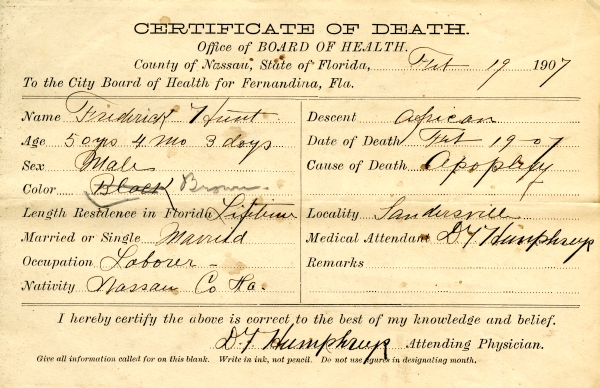 CERTIFICATE OF DEATH.
Office of BOARD OF HEALTH.
County of Nassau, State of Florida, Feb 19 1907
To the City Board of Health for Fernandina, Fla.
Name Frederick Hunt
Age 50 yrs 4 mo 3 days
Sex Male
Color Black Brown
Length Residence in Florida Lifetime
Married or Single Married
Occupation Laborer
Nativity Nassau Co Fla.
Descent African
Date of Death Feb 19 07
Cause of Death Apoplexy
Locality Sandersville
Medical Attendant D.F. Humphreys
Remarks
I hereby certify the above is correct to the best of my knowledge and belief.
D.F. Humphreys Attending Physician.
Give all information called for on this blank. Write in ink, not pencil. Do not use figures in designating month.